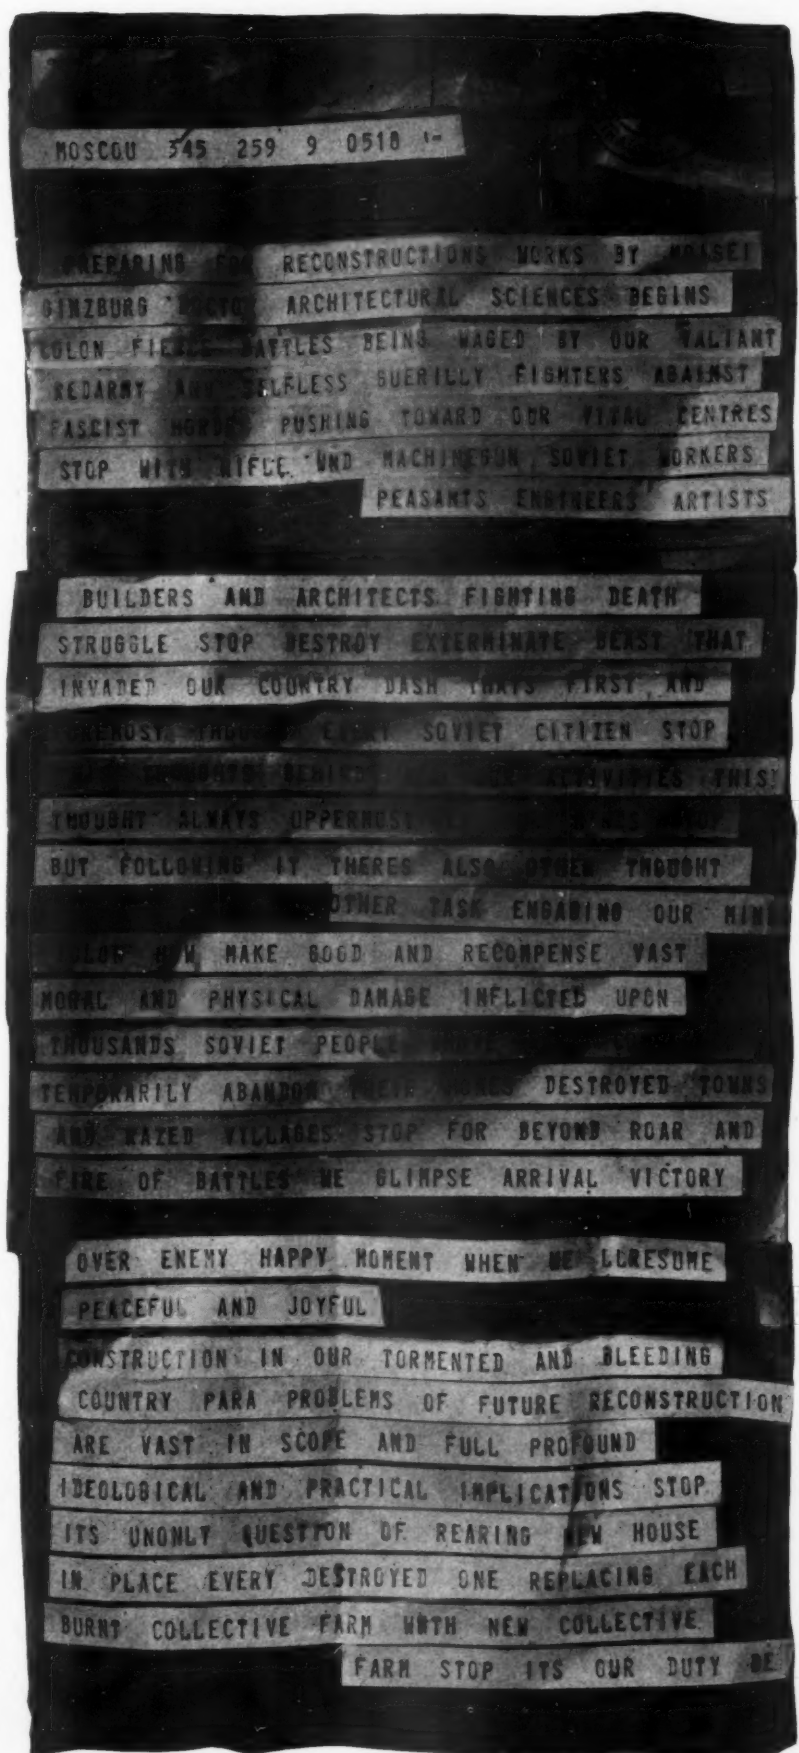 MOSCOU 345 259 9 0518
PREPARING FOR RECONSTRUCTIONS WORKS BY
GINZBURG DOCTO ARCHITECTURAL SCIENCES BEGINS
COLON FIERCE BATTLES BEING WAGED BY OUR VALIANT
REDARMY AND SELFLESS GUERILLY FIGHTERS AGAINST
FASCIST HORDES PUSHING TOWARD OUR VITAL CENTRES
STOP WITH RIFLE WND MACHINEGUN SOVIET WORKERS
PEASANTS ENGINEERS ARTISTS
BUILDERS AND ARCHITECTS FIGHTING DEATH
STRUGGLE STOP DESTROY EXTERMINATE BEAST THAT
INVADED OUR COUNTRY DASH THATS FIRST AND
FOREMOST THOUGHT EVERY SOVIET CITIZEN STOP
THOUGHTS BEHIND ACTIVITIES THIS
THOUGHT ALWAYS UPPERMOST
BUT FOLLOWING IT THERES ALSO OTHER THOUGHT
OTHER TASK ENGAGING OUR MIN
COLON HOW MAKE GOOD AND RECOMPENSE VAST
MORAL AND PHYSICAL DAMAGE INFLICTED UPON
THOUSANDS SOVIET PEOPLE
TEMPORARILY ABANDON THEIR HOMES DESTROYED TOWNS
AND RAZED VILLAGES STOP FOR BEYOND ROAR AND
FIRE OF BATTLES WE GLIMPSE ARRIVAL VICTORY
OVER ENEMY HAPPY MOMENT WHEN WE LLRESUME
PEACEFUL AND JOYFUL
CONSTRUCTION IN OUR TORMENTED AND BLEEDING
COUNTRY PARA PROBLEMS OF FUTURE RECONSTRUCTION
ARE VAST IN SCOPE AND FULL PROFOUND
IDEOLOGICAL AND PRACTICAL IMPLICATIONS STOP
ITS UNONLY QUESTION OF REARING NEW HOUSE
IN PLACE EVERY DESTROYED ONE REPLACING EACH
BURNT COLLECTIVE FARM WNTH NEW COLLECTIVE
FARM STOP ITS OUR DUTY BE